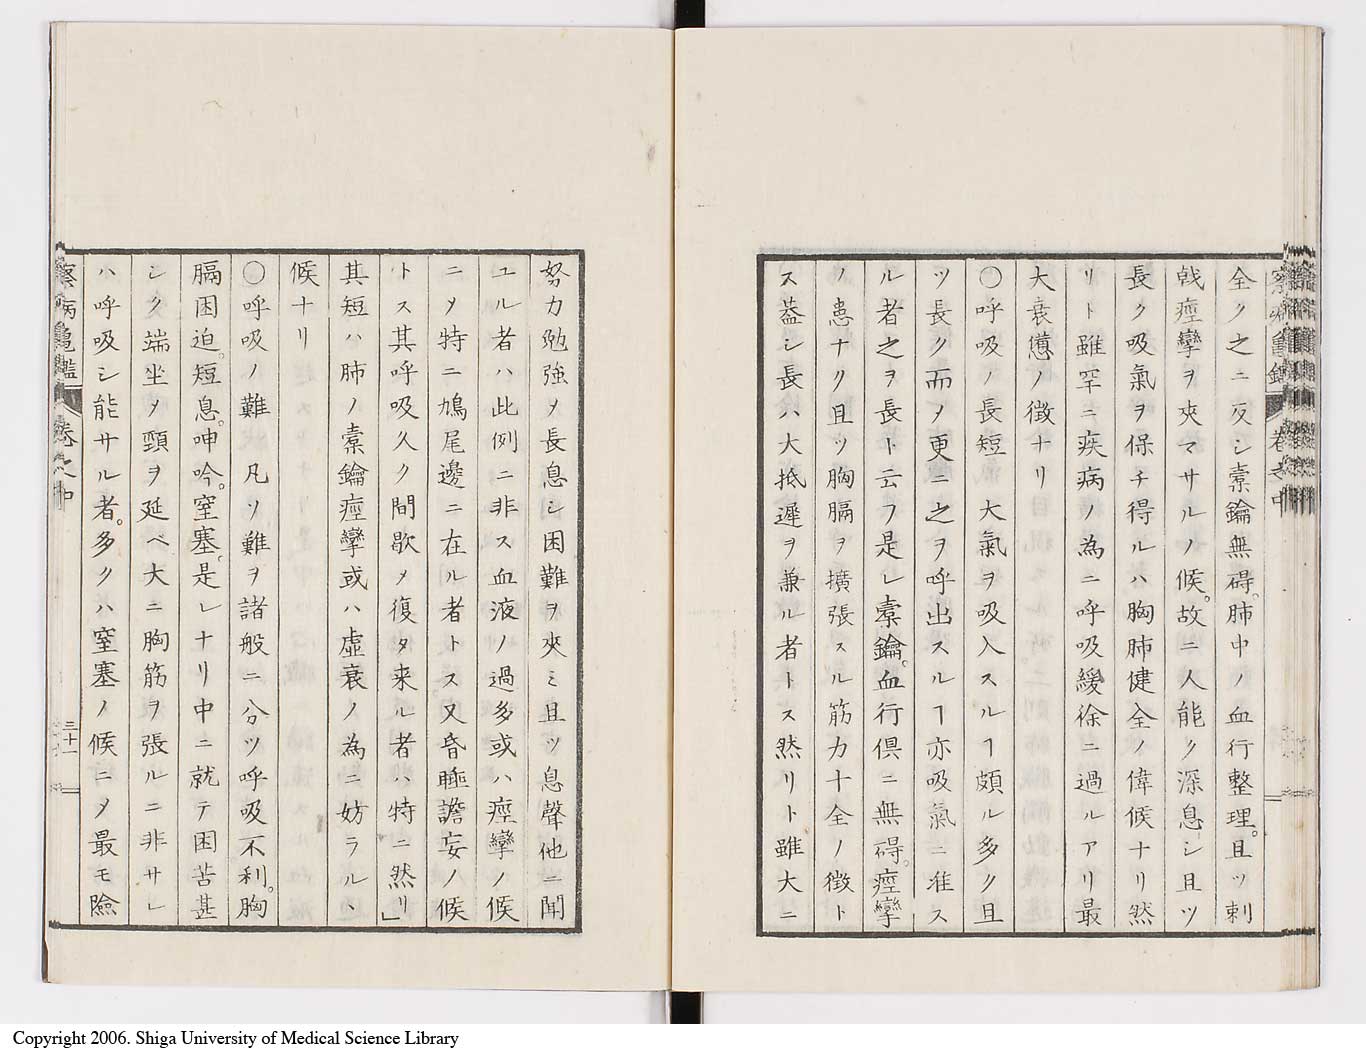 全ク之ニ反シ橐鑰無碍。肺中ノ血行整理。且ツ刺
戟痙攣ヲ夾マサルノ候。故ニ人能ク深息シ且ツ
長ク吸氣ヲ保チ得ルハ胸肺健全ノ偉候ナリ然
リト雖罕ニ疾病ノ為ニ呼吸緩徐ニ過ルアリ最
大衰憊ノ徴ナリ
〇呼吸ノ長短 大氣ヲ吸入スルヿ頗ル多ク且
ツ長ク而ノ更ニ之ヲ呼出スルヿ亦吸氣ニ准ス
ル者之ヲ長ト云フ是レ橐鑰。血行倶ニ無碍。痙攣
ノ患ナク且ツ胸膈ヲ擴張スル筋力十全ノ徴ト
ス葢シ長ハ大抵遲ヲ兼ル者トス然リト雖大ニ
努力勉強メ長息シ困難ヲ夾ミ且ツ息聲他ニ聞
ユル者ハ此例ニ非ス血液ノ過多或ハ痙攣ノ候
ニメ特ニ鳩尾邊ニ在ル者トス又昏睡譫妄ノ候
トス其呼吸久ク間歇メ復タ来ル者ハ特ニ然リ」
其短ハ肺ノ橐鑰痙攣或ハ虚衰ノ為ニ妨ラルヽ
候ナリ
〇呼吸ノ難 凡ソ難ヲ諸般ニ分ツ呼吸不利。胸
膈困迫。短息。呻吟。窒塞。是レナリ中ニ就テ困苦甚
シク端坐メ頸ヲ延ベ大ニ胸筋ヲ張ルニ非サレ
ハ呼吸シ能サル者。多クハ窒塞ノ候ニメ最モ險
察病亀鑑
巻之中
三十一
Copyright 2006. Shiga University of Medical Science Library